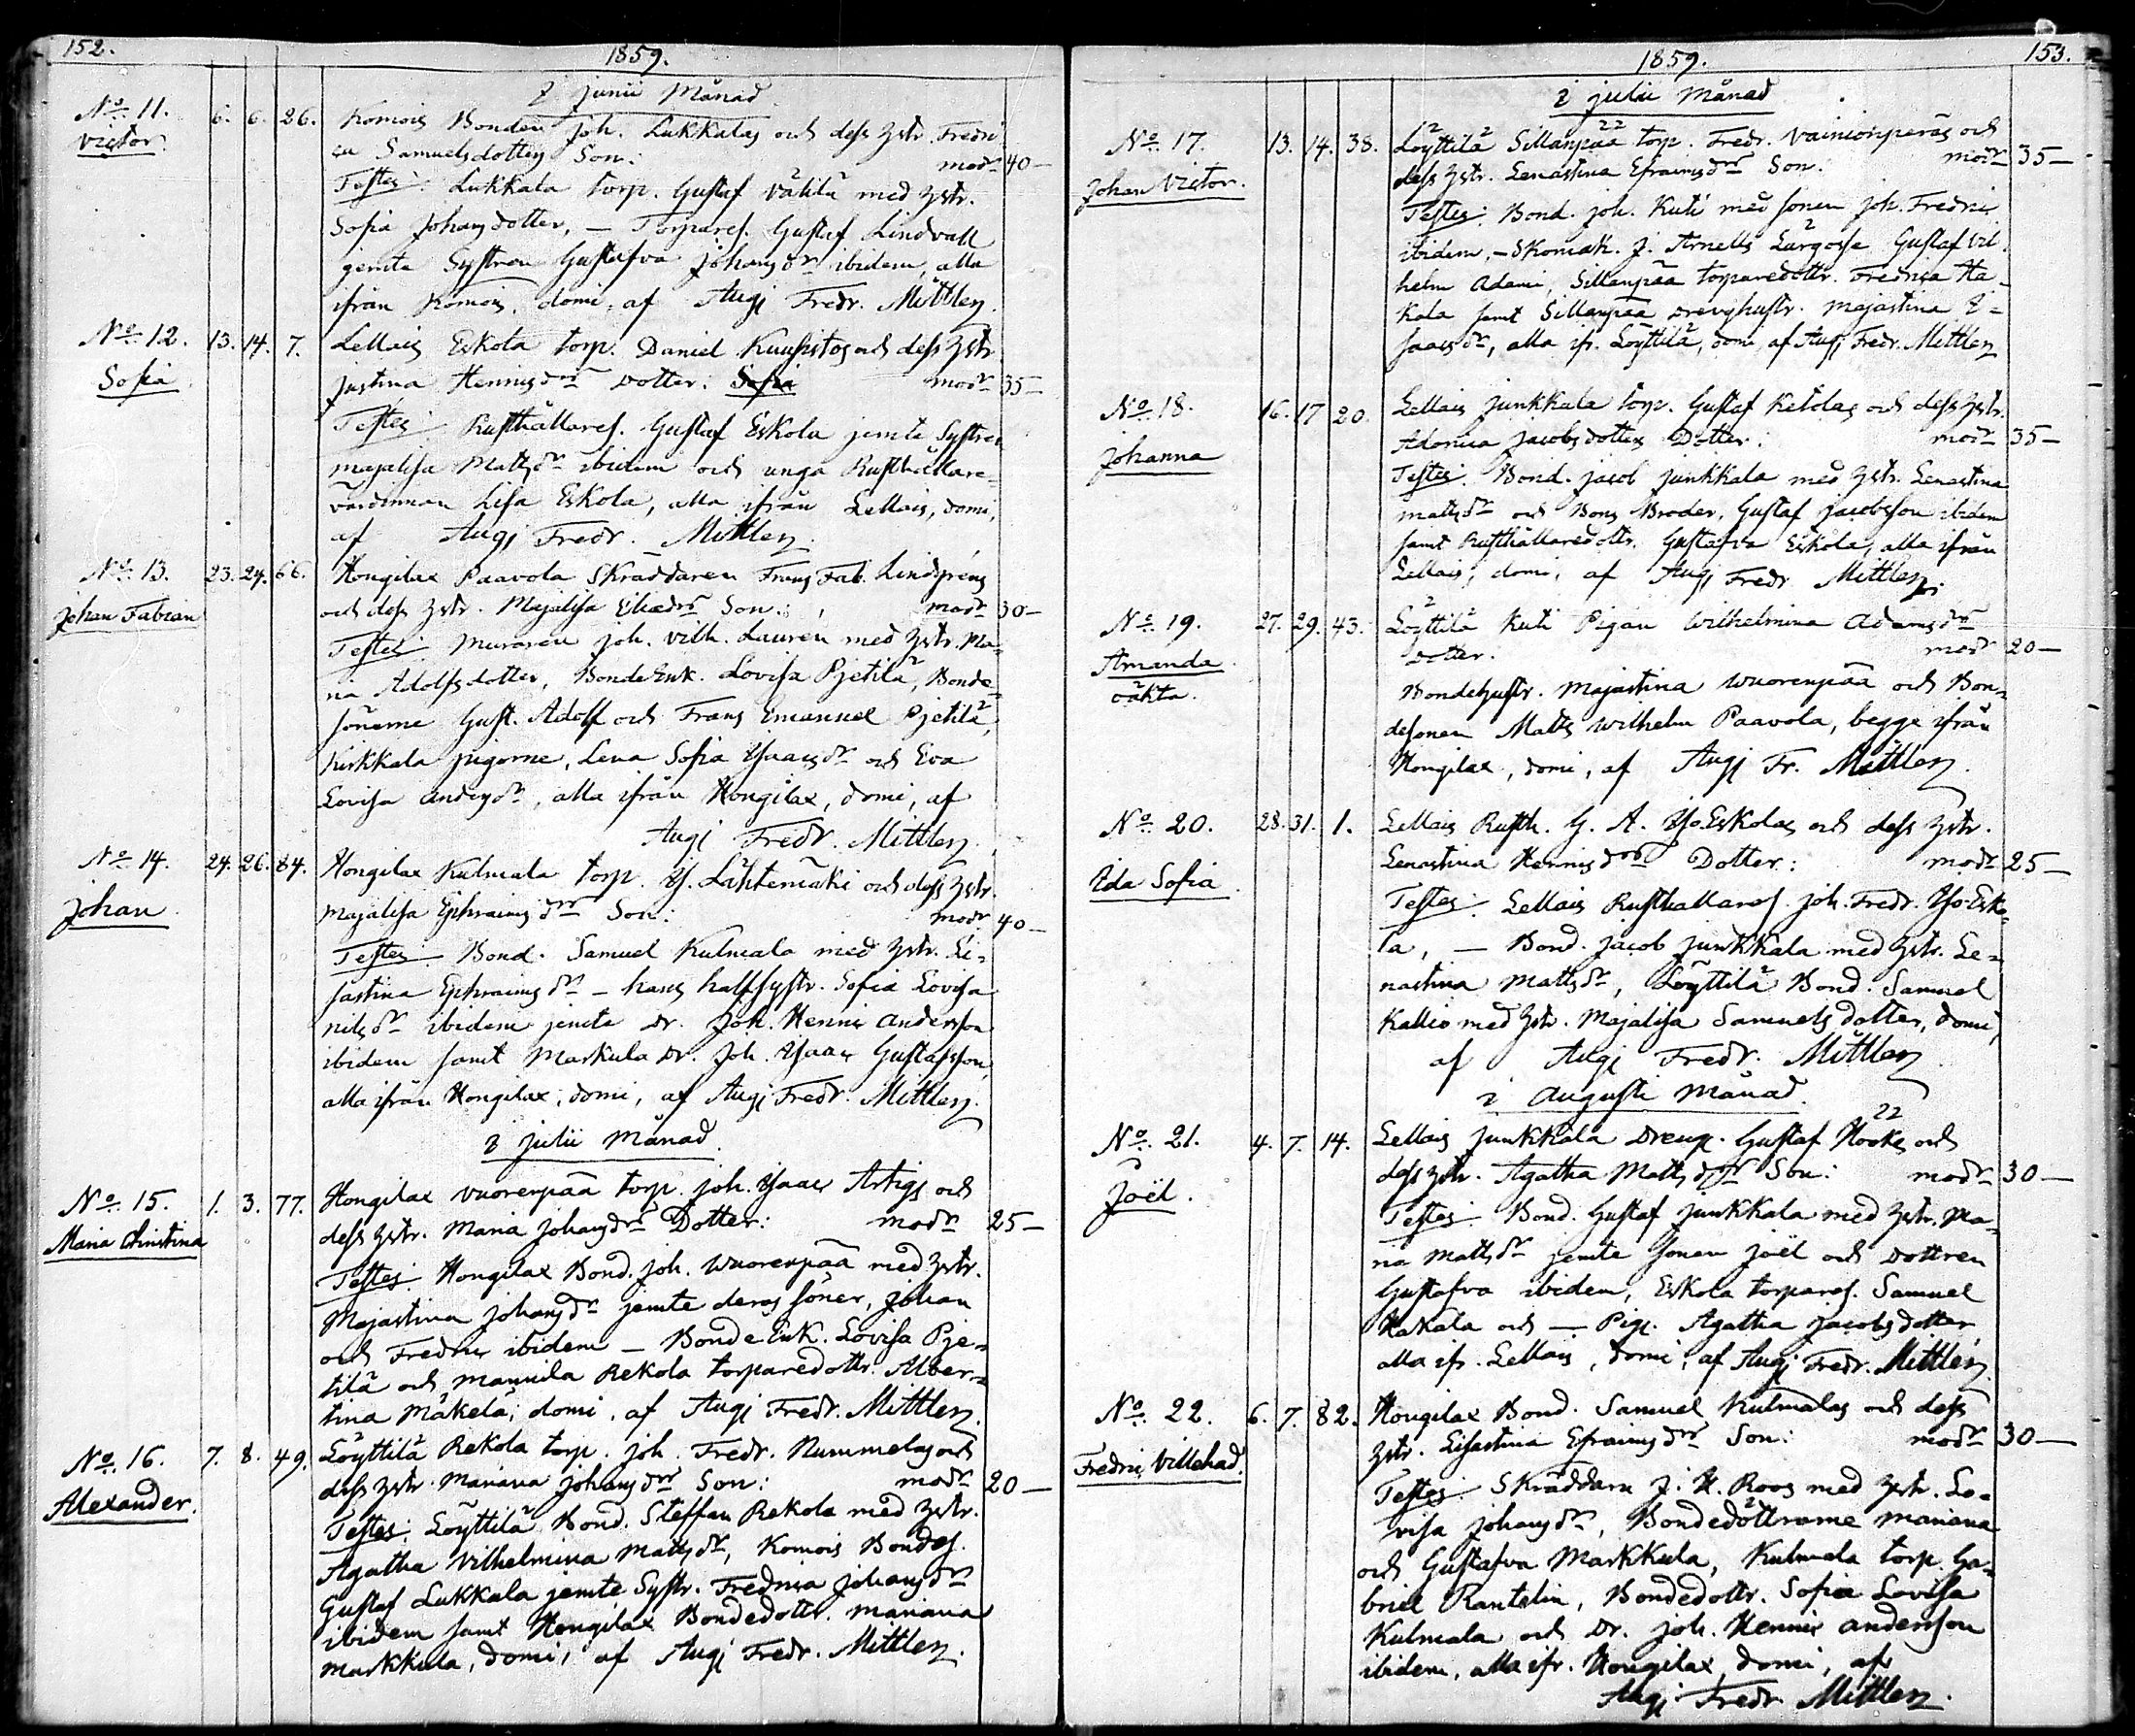 152.
1859.
I junii Månad
No. 11. 6. 6. 26. Komois Bonden Joh. Lukkalas och dess hstr. Fredri
Victor
ca Samuelsdotters Son: modr 40 —
Testes: Lukkala torp. Gustaf Vähälä med hstr.
Sofia Johansdotter, — Torpares. Gustaf Lindvall
jemte Systren Gustafva Johansdr ibidem, alla
ifrån Komois, domi, af Augj Fredr. Mittler.
No. 12. 13. 14. 7. Lellais Eskola torp. Daniel Kuusistos och dess hstr
Sofia
Justina Henricsdrs Dotter: Sofia modr 35 —
Testes Rusthållares. Gustaf Eskola jemte Systren
Majalisa Mattsdr ibidem och unga Rusthållare-
värdinnan Lisa Eskola, alla ifrån Lellais, domi,
af Augj Fredr. Mittler.
No. 13. 23. 24. 66. Hongilax Paavola Skräddaren Frans Fab. Lindgréns
Johan Fabian
och dess hstr. Majalisa Son: modr 30 —
Testes Muraren Joh. Vilh. Laurén med hstr. Ma-
ria Adolfsdotter, BondeEnk. Lovisa Pjetilä, Bonde-
sönerne Gust. Adolf och Frans Emanuel Pjetilä,
Kirkkala pigorne, Lena Sofia Isaacsdr och Eva
Lovisa Andersdr, alla ifrån Hongilax, domi, af
Augj Fredr. Mittler.
No. 14. 24. 26. 84. Hongilax Kulmala torp. Is. Lähtemäki och dess hstr.
Johan
Majalisa Ephraimsdrs Son: modr 40 —
Testes Bond. Samuel Kulmala med hstr. Li-
sastina Ephraimsdr — hans halfsystr. Sofia Lovisa
Nilsdr ibidem jemte Dr. Joh. Henric Andersson
ibidem samt Markula Dr. Joh. Isaac Gustafsson,
alla ifrån Hongilax, domi, af Augj Fredr. Mittler.
I julii Månad
No. 15. 1. 3. 77. Hongilax Vuorenpää torp. Joh. Isaac Artigs och
Maria Christina
dess hstr. Maria Johansdrs Dotter: modr 25 —
Testes: Hongilax Bond. Joh. Wuorenpää med hstr.
Majastina Johansdr jemte deras söner, Johan
och Fredric ibidem — BondeEnk. Lovisa Pje-
tilä och Mannila Rekola torparedottr. Alber-
tina Mäkelä, domi, af Augj Fredr. Mittler.
No. 16. 7. 8. 49. Löyttilä Rekola torp. Joh. Fredr. Nummelas och
Alexander.
dess hstr. Mariana Johansdrs Son: modr 20 —
Testes: Löyttilä Bond. Steffan Rekola med hstr.
Agatha Vilhelmina Mattsdr, Komois Bondes.
Gustaf Lukkala jemte Systr. Fredrica Johansdr
ibidem samt Hongilax Bondedottr. Mariana
Markkula, domi, af Augj Fredr. Mittler.
1859.
153.
I julii Månad
No. 17. 13. 14. 38. Löyttilä Sillanpää torp. Fredr. Vainionperäs och
Johan Victor.
dess hstr. Lenastina Efraimsdrs Son: modr 35 —
Testes: Bond. Joh. Kuti med sonen Joh. Fredric
ibidem, — Skomak. J. Arnells Lärgosse Gustaf Vil-
helm Adami, Sillanpää torparedottr. Fredrica Ha-
kala samt Sillanpää drenghustr. Majastina I-
saacsdr, alla ifr. Löyttilä, domi, af Augj Fredr. Mittler
No. 18. 16. 17 20. Lellais Junkkala torp. Gustaf Ketolas och dess hstr.
Johanna
Adamia Jacobsdotters Dotter: modr 35 —
Testes: Bond. Jacob Junkkala med hstr. Lenastina
Mattsdr och Bons Broder, Gustaf Jacobsson ibidem
samt Rusthållaredottr. Gustafva Eskola, alla ifrån
Lellais, domi, af Augj Fredr Mittler.
No. 19. 27. 29. 43. Löyttilä Kuti Pigan Wilhelmina Adamsdrs
Amanda
oäkta.
Dotter: modr 20 —
Bondehustr. Majastina Wuorenpää och Bon-
desonen Matts Wilhelm Paavola, begge ifrån
Hongilax, domi, af Augj Fr. Mittler.
No. 20. 28. 31. 1. Lellais Rusth. G. A. Iso-Eskolas och dess hstr.
Ida Sofia
Lenastina Henricsdrs Dotter: modr 25 —
Testes: Lellais Rusthållares. Joh. Fredr. Iso-Esko-
la, — Bond. Jacob Junkkala med hstr. Le-
nastina Mattsdr, Löyttilä Bond. Samuel
Kallio med hstr. Majalisa Samuelsdotter, domi,
af Augj Fredr. Mittler
i Augusti Månad.
No. 21. 4. 7. 14. Lellais Junkkala Dreng. Gustaf Höökes och
Joël.
dess hstr. Agatha Mattsdrs Son: modr 30 —
Testes: Bond. Gustaf Junkkala med hstr. Ma-
ria Mattsdr jemte sonen Joël och Dottren
Gustafva ibidem, Eskola torpares. Samuel
Hakala och — Pig. Agatha Jacobsdotter,
alla ifr. Lellais, domi, af Augj Fredr. Mittler.
No. 22. 6. 7. 82. Hongilax Bond. Samuel Kulmalas och dess
Fredric Villehad.
hstr. Lisastina Efraimsdrs Son: modr 30 —
Testes: Skräddarn J. H. Roos med hstr. Lo-
visa Johansdr, Bondedöttrarne Mariana
och Gustafva Markkula, Kulmala torp. Ga-
briel Rantalin, Bondedottr. Sofia Lovisa
Kulmala och Dr. Joh. Henric Andersson
ibidem, alla ifr. Hongilax, domi, af
Augj Fredr Mittler.